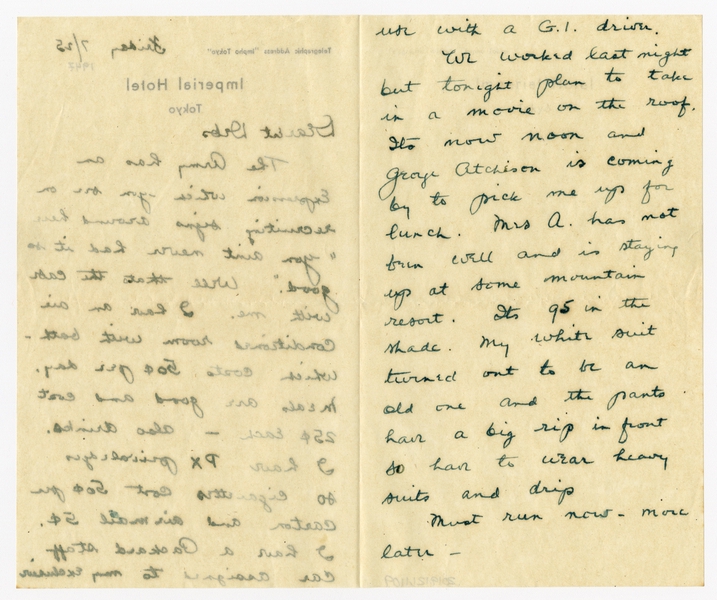 Telegraphic Address "Impho Tokyo"
Friday 7/25
1947
Imperial Hotel
Tokyo
Dearest
The Army has an
Expression which you see on
recruiting signs around here
"you aint never had it so
good." Well thats the case
with me. I have an air
Conditioned room with bath -
which costs 50¢ per day.
Meals are good and cost
25¢ Each - also drinks.
I have PX
so cigarettes cost 50¢ per
Carton and air mail 5¢.
I have a Packard staff
car assigned to my exclusive
use with a G.I. driver.
We worked last night
but tonight plan to take
in a movie on the roof.
Its now noon and
George Atcheson is coming
by to pick me up for
lunch. Mrs A. has not
been well and is staying
up at some mountain
resort. Its 95 in the
shade. My white suit
turned out to be an
old one and the pants
have a big rip in front
so have to wear heavy
suits and drip
Must run now - more
later -